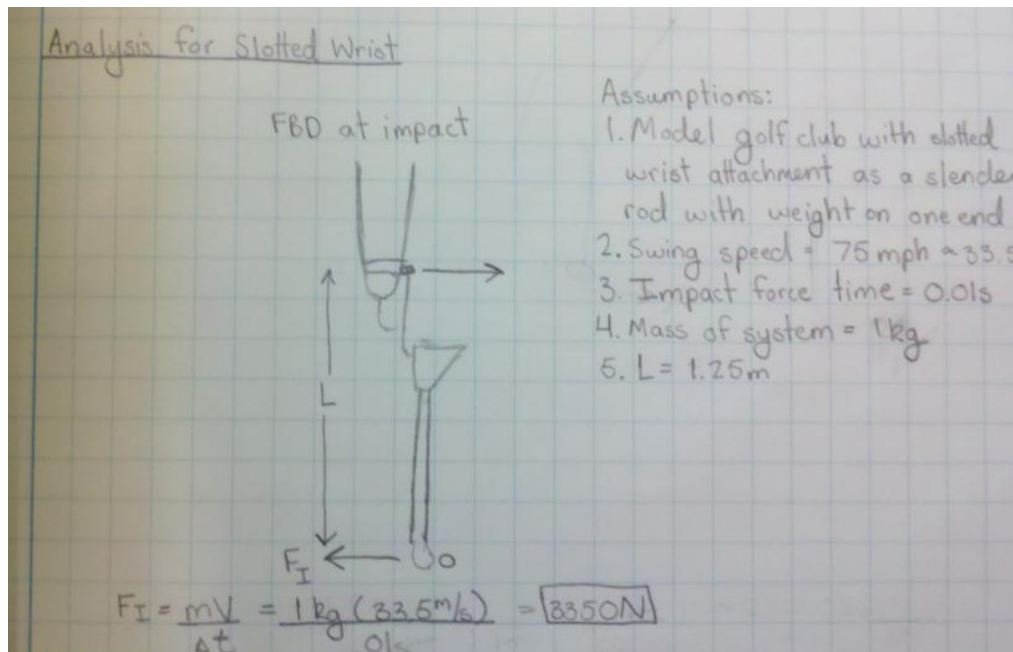 Analysis for Slotted Wrist
FBD at impact
Assumptions:
1. Model golf club with slotted
wrist attachment as a slende
rod with weight on one end
2. Swing speed = 75 mph ≈ 33.5
3. Impact force time = 0.01s
4. Mass of system = 1kg
5. L = 1.25m
L
F_I
O
F_I = mV/Δt = 1 kg (33.5 m/s)/.01s = 3350N